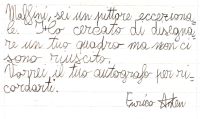 Malfini, sei un pittore ecceziona-
le. Ho cercato di disegna-
re un tuo quadro ma non ci
sono riuscito.
Vorrei il tuo autografo per ri-
cordarti.
Enrico